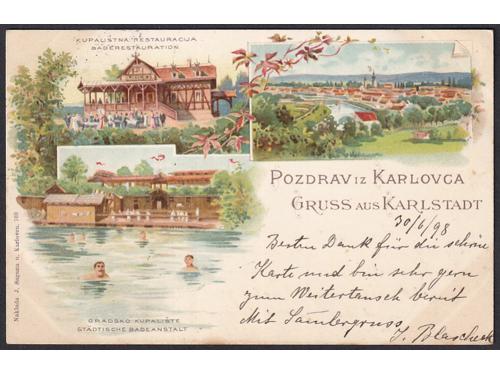 KUPALISTNA RESTAURACIJA
BADERESTAURATION
POZDRAV IZ KARLOVCA
GRUSS AUS KARLSTADT
30/6/98
Besten Dank für die schöne
Karte und bin sehr gern
zum Weitertausch bereit
Mit Samlergruss
J. Blascheck
GRADSKO KUPALIŠTE
STÄDTISCHE BADEANSTALT
Naklada J. Sagana u. Karlovcu.